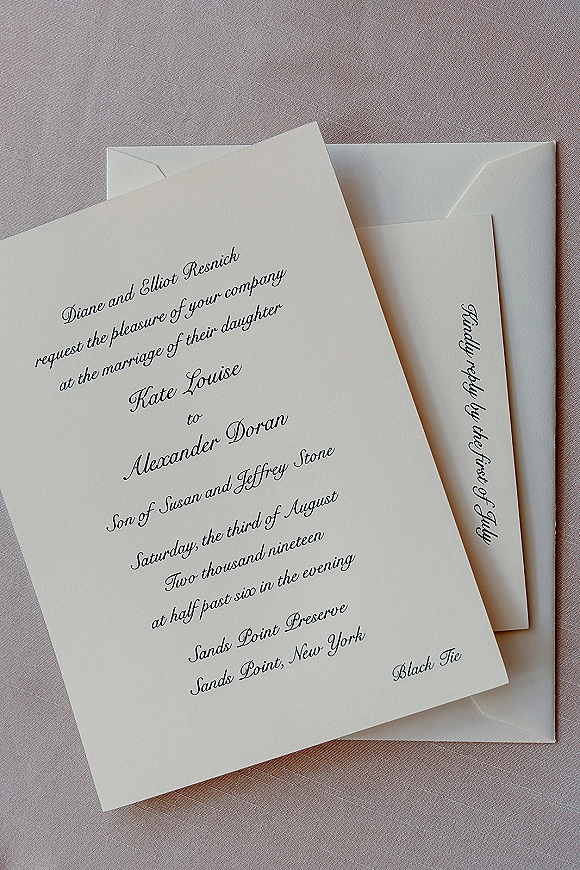 Diane and Elliot Resnick
request the pleasure of your company
at the marriage of their daughter
Kate Louise
to
Alexander Doran
Son of Susan and Jeffrey Stone
Saturday, the third of August
Two thousand nineteen
at half past six in the evening
Sands Point Preserve
Sands Point, New York
Black Tie
Kindly reply by the first of July